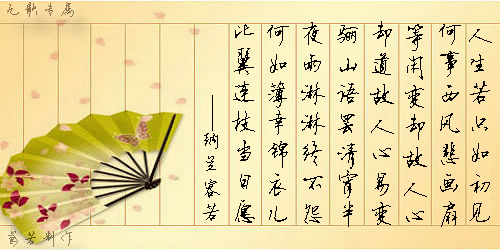 人生若只如初见
何事西风悲画扇
等闲变却故人心
却道故人心易变
骊山语罢清宵半
夜雨淋淋终不怨
何如薄幸锦衣儿
比翼连枝当日愿
——纳兰容若
专属
制作